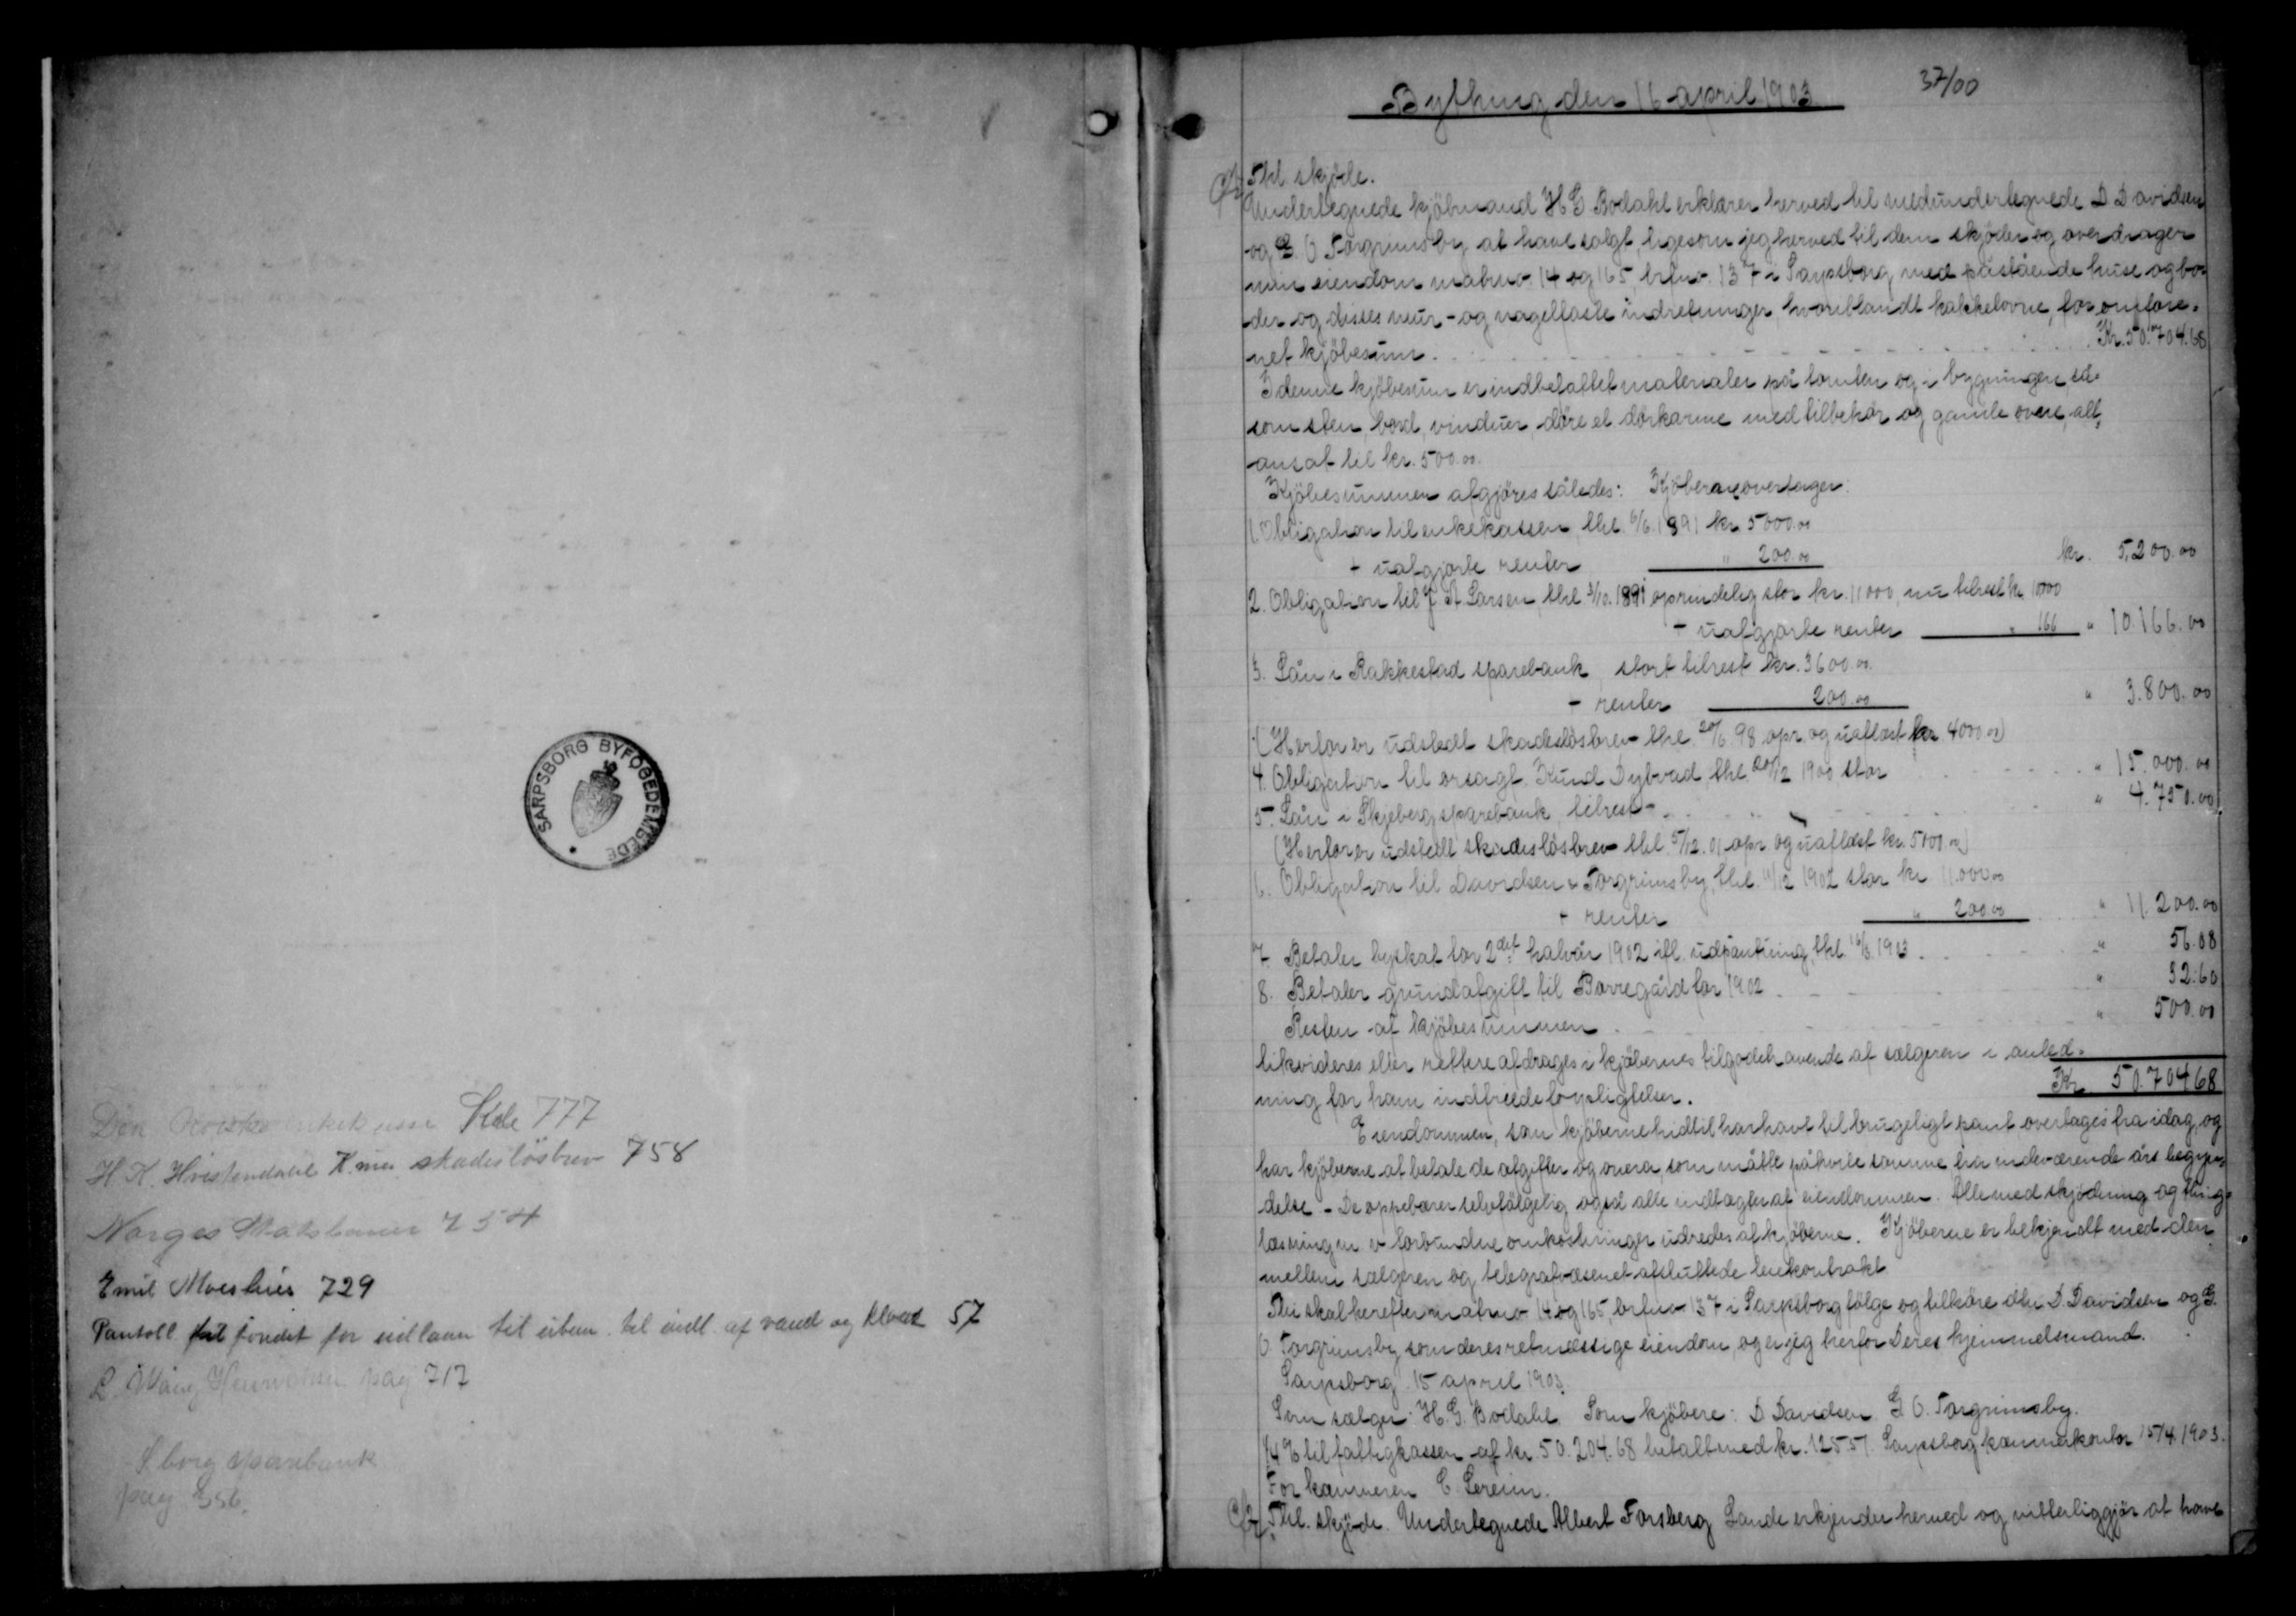 SARPSBORG BYFOGEDEMBEDE
Den Norske enkekasse Side 777
H. K. Hvistendahl K.mer skadeslösbrev 758
Norges Statsbaner 754
Emil Moestue 729
Pantobl til fondet for indlaan til til indl af vand og kloak 57
pag 717
S.borg sparebank
pag
Bything den 16 april 1903
37/00
Thl. skjöde.
Undertegnede kjöbmand H G Bodahl erklærer herved til medundertegnede D Davidsen
og G O Torgrimsby at have solgt, ligesom jeg herved til dem skjöder og overdrager
min eiendom matrno. 14 og 165, brfno. 137 i Sarpsborg med påstående huse og bo-
der og disses mur- og nagelfaste indretninger hvoriblandt kakkelovne, for omfore-
net kjöbesum. Kr. 50.704.68
I denne kjöbesum er indbefattet materialer på tomten og i bygningen så-
som sten, bord, vinduer, döre et dörkarme med tilbehör og gamle ovne, alt
ansat til kr. 500.00.
Kjöbesummen afgjöres således: Kjöberne overtager:
1. Obligation til enkekassen, thl. 6/6 1891 kr. 5000.00
+ uafgjorte renter " 200.00 kr. 5.200.00
2. Obligation til J A Larsen, thl 3/10. 1891 oprindelig stor kr. 11000, nu tilrest kr. 10.000
+ uafgjorte renter " 166 " 10.166.00
3. Lån i Rakkestad sparebank stort tilrest kr. 3600.00.
+ renter 200.00 " 3.800.00
(Herfor er udstedt skadeslösbrev thl. 20/6. 98 opr. og uaflæst kr. 4000.00)
4. Obligation til orsagf. Knud Dybvad, thl 20/12 1900 stor " 15.000.00
5. Lån i Skjeberg sparebank, tilrest " 4.750.00
(Herfor er udstedt skadeslösbrev thl. 5/12. 01 opr. og uaflæst kr. 5000.00)
6. Obligation til Davidsen & Torgrimsby, thl. 11/12 1902 stor kr. 11.000.00
+ renter " 200.00 " 11.200.00
7. Betaler byskat for 2det halvår 1902 ifl. udpantning, thl. 16/3. 1903. " 56.08
8. Betaler grundafgift til Borregård for 1902 " 32.60
Resten af kjöbesummen " 500.00
likvideres eller rettere afdrages i kjöbernes tilgodehavende af sælgeren i anled-
ning for ham indfriede forpligtelser. Kr. 50.704.68
Eiendommen, som kjöberne hidtil har havt til brugeligt pant overtages fra idag, og
har kjöberne at betale de afgifter og onera, som måtte påhvile samme fra indeværende års begyn-
delse. - De oppebærer selvfölgelig også alle indtægter af eiendommen. Alle med skjödning og thing-
læsningen v forbundne omkostninger udredes af kjöberne. Kjöberne er bekjendt med den
mellem sælgeren og telegrafvæsenet afsluttede leiekontrakt
Thi skal herefter matrno 14 og 165, brfno 137 i Sarpsborg fölge og tilhöre dhr. D. Davidsen og G.
O. Torgrimsby som deres retmæssige eiendom, og er jeg herfor Deres hjemmelsmand.
Sarpsborg 15 april 1903.
Som sælger: H. G. Bodahl. Som kjöbere: D Davidsen G O. Torgrimsby.
1/4 % til fattigkassen af kr. 50.204.68 betalt med kr. 125.51. Sarpsborg kæmnerkontor 15/4. 1903.
For kæmneren
Thl. skjöde. Undertegnede Albert Forsberg Sande erkjender herved og vitterliggjör at have